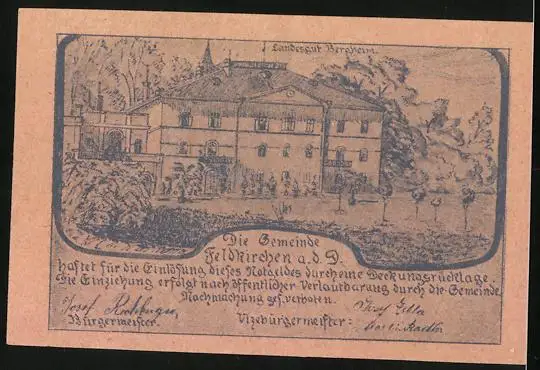 Landesgut Bergheim.
Die Gemeinde
Feldkirchen a.d.D.
haftet für die Einlösung dieses Notgeldes durch eine Deckungsrücklage.
Die Einziehung erfolgt nach öffentlicher Verlautbarung durch die Gemeinde
Nachmachung ges. verboten.
Josef
Bürgermeister. Vizebürgermeister: